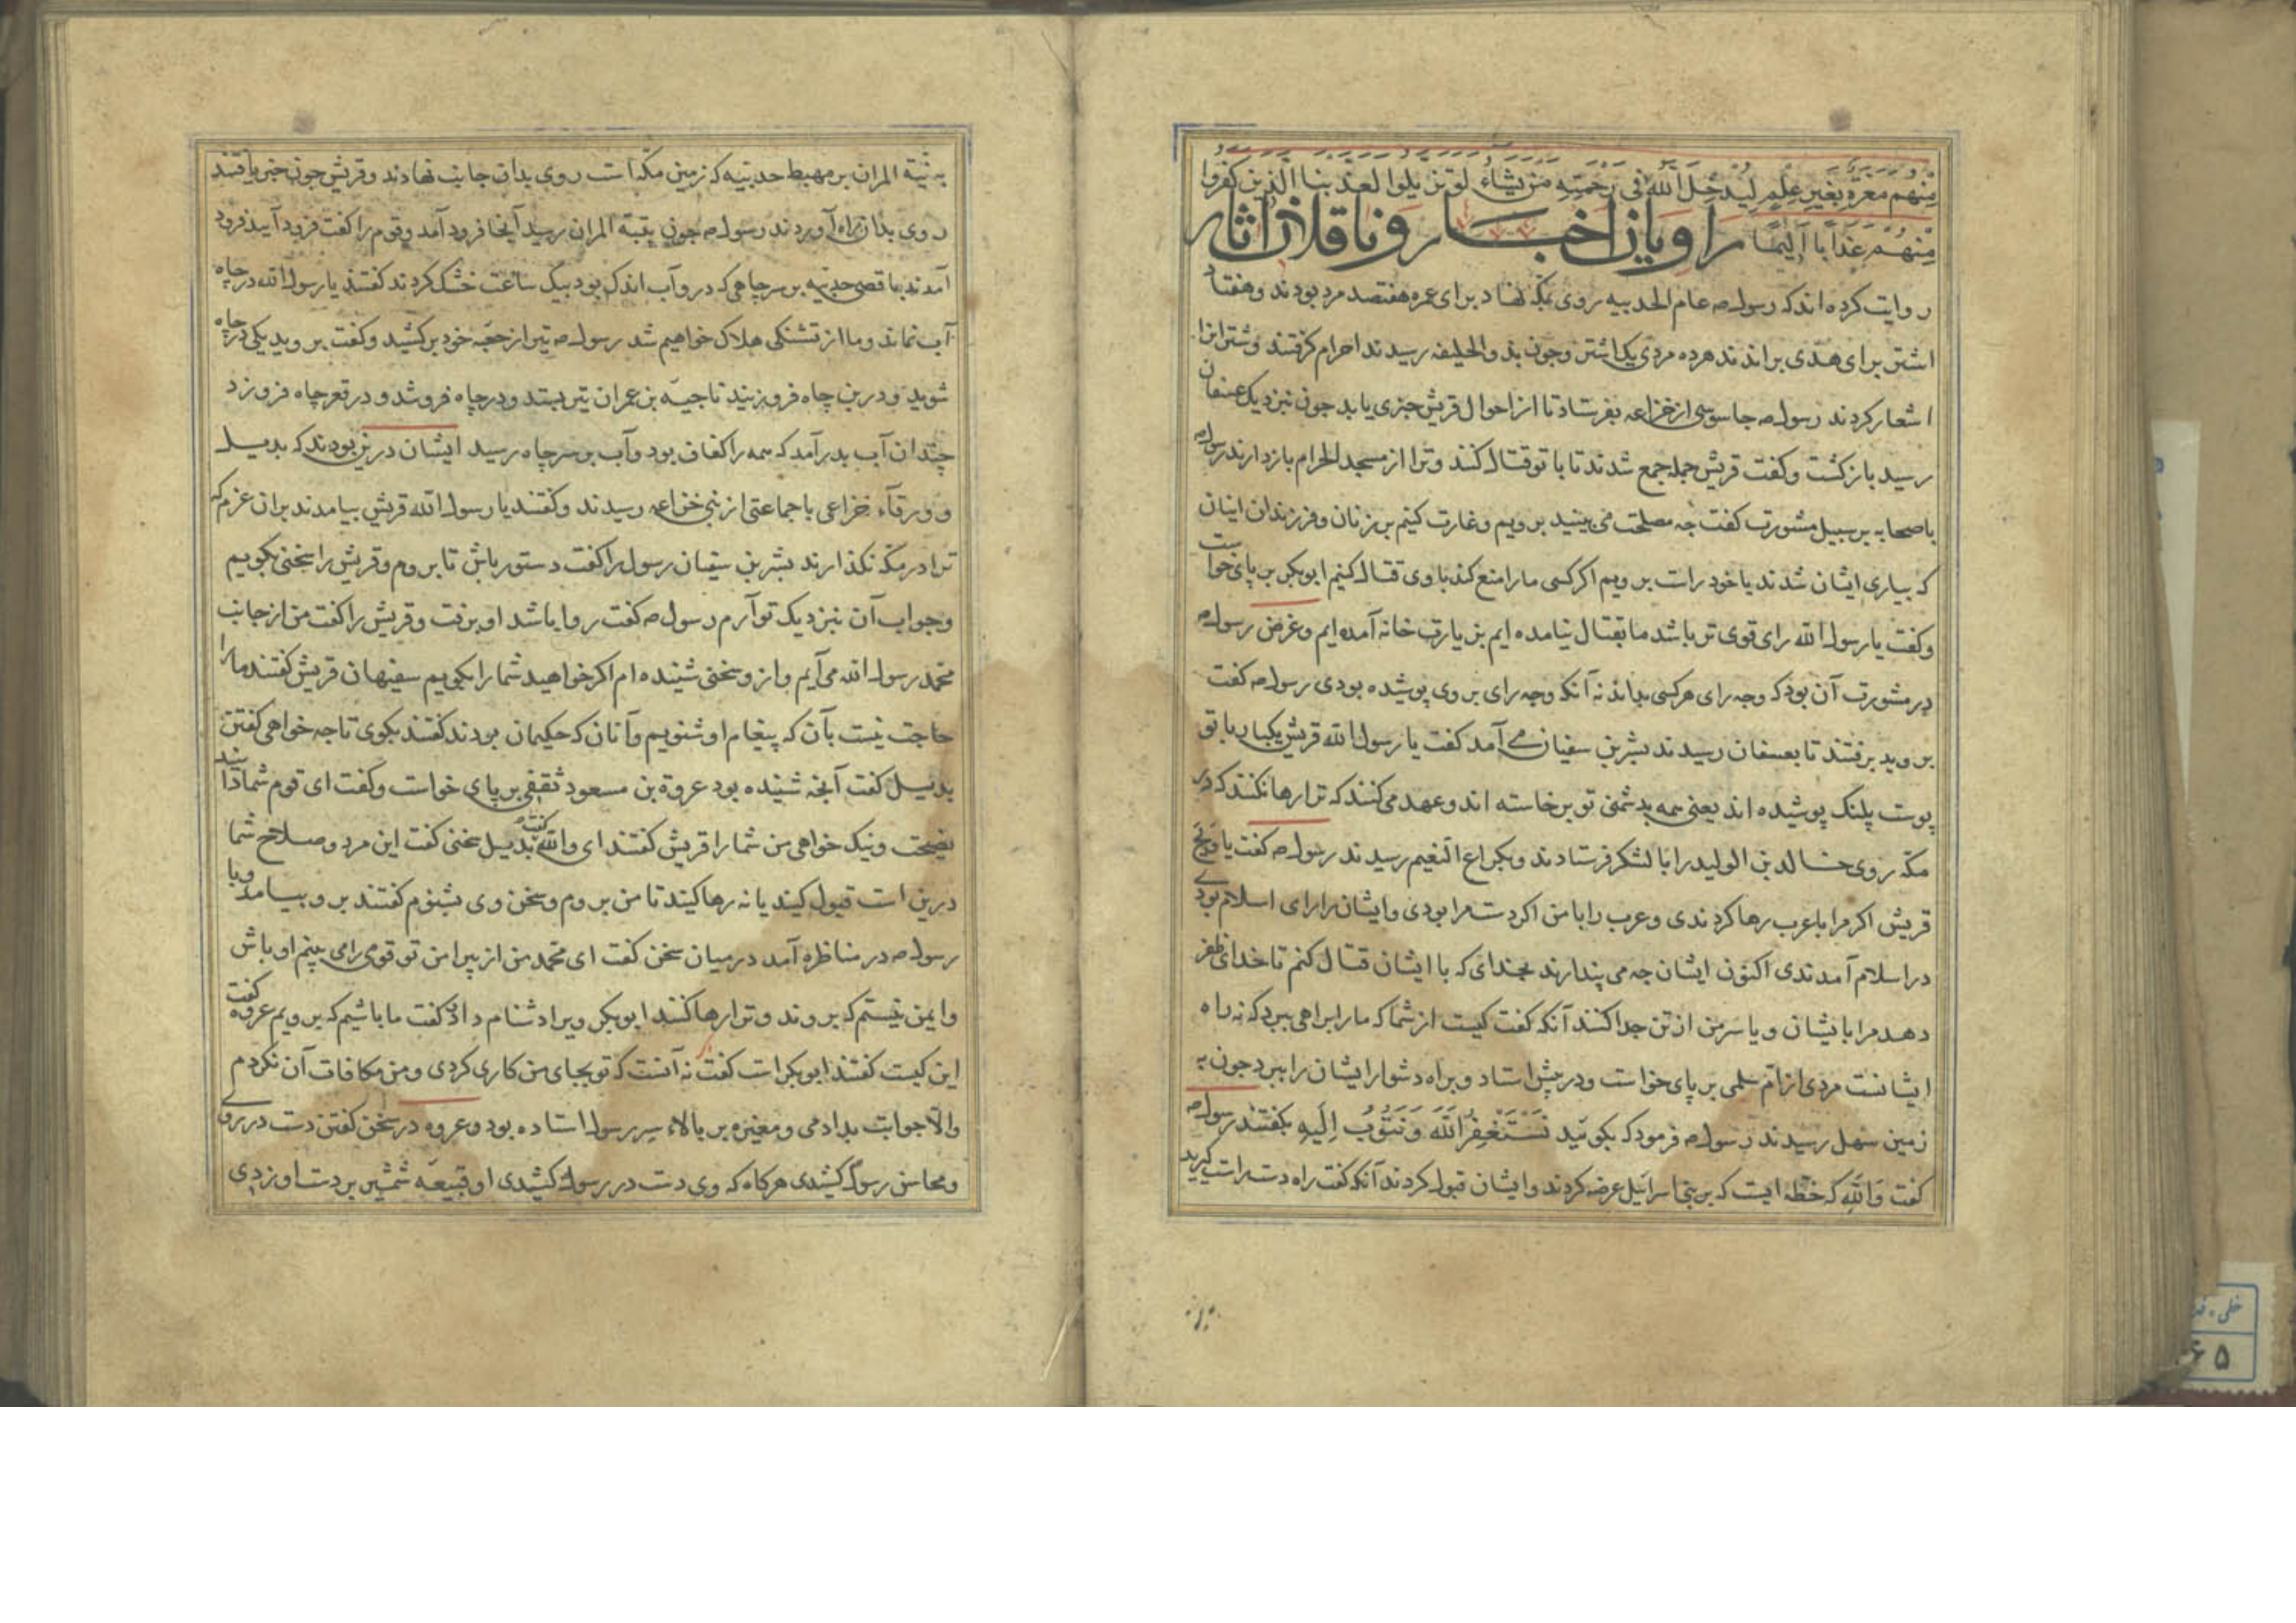 مِنْهُم مَعَرَّةٌ بِغَيْرِ عِلْمٍ لِيُدْخِلَ اللّٰهُ فِي رَحْمَتِهِ مَنْ يَشَاءُ لَوْ تَزَيَّلُوا لَعَذَّبْنَا الَّذِينَ كَفَرُوا
مِنْهُمْ عَذَابًا أَلِيمًا راویان اخبار و ناقلان اثار
روایت کرده اند که رسول ص عام الحدیبیه روی بمکه نهاد برای عمره هفتصد مرد بودند و هفتاد
اشتر برای هدی براندند هر ده مردی یک اشتر و چون بذو الحلیفه رسیدند احرام کرفتند و شتران را
اشعار کردند رسول ص جاسوسی از خزاعه بفرستاد تا از احوال قریش خبری یابد چون نزدیک عسفان
رسید باز کشت و کفت قریش جمله جمع شدند تا با تو قتال کنند و ترا از مسجد الحرام باز دارند رسول ص
با صحابه بر سبیل مشورت کفت چه مصلحت می بینید برویم و غارت کنیم بر زنان و فرزندان اینان
که بیاری ایشان شدند یا خود راست برویم اکر کسی ما را منع کند با وی قتال کنیم ابوبکر بر پای خواست
و کفت یا رسول الله رای قوی تر باشد ما بقتال نیامده ایم بزیارت خانه آمده ایم و غرض رسول ص
در مشورت آن بود که وجه رای هر کسی بداند نه آنکه وجه رای بر وی پوشیده بودی رسول ص کفت
بروید برفتند تا بعسفان رسیدند بشر بن سفیان می آمد کفت یا رسول الله قریش یکبار با تو
پوست پلنک پوشیده اند یعنی همه بدشمنی تو برخاسته اند و عهد می کنند که ترا رها نکنند که در
مکه روی خالد بن الولید را با لشکر فرستادند و بکراع الغمیم رسیدند رسول ص کفت یا ویح
قریش اکر مرا با عرب رها کردندی و عرب را با من اکر دست مرا بودی و ایشان را رای اسلام بودی
در اسلام آمدندی اکنون ایشان چه می پندارند بخدای که با ایشان قتال کنم تا خدای ظفر
دهد مرا بایشان و یا سر من از تن جدا کنند آنکه کفت کیست از شما که ما را براهی ببرد که نه راه
ایشانست مردی از اسلم سلمی بر پای خواست و در پیش استاد و براه دشوار ایشان را ببرد چون به
زمین سهل رسیدند رسول ص فرمود که بکوئید نَسْتَغْفِرُ اللّٰهَ وَنَتُوبُ اِلَيهِ بکفتند رسول ص
کفت واللّٰه که حطه ایست که بر بنی اسرائیل عرضه کردند و ایشان قبول نکردند آنکه کفت راه دست راست کیرید
به ثنیة المران بر مهبط حدیبیه که زمین مکه است روی بدان جانب نهادند و قریش چون خبر یافتند
روی بدان راه آوردند رسول ص چون بثنیة المران رسید آنجا فرود آمد و قوم را کفت فرود آیید فرود
آمدند باقصی حدیبیه بر سر چاهی که درو آب اندک بود بیک ساعت خشک کردند کفتند یا رسول الله در چاه
آب نماند و ما از تشنکی هلاک خواهیم شد رسول ص تیر از جعبه خود بر کشید و کفت بروید یکی در چاه
شوید و درین چاه فرو زنید ناجیه بن عمران تیر بستد و در چاه فرو شد و در قعر چاه فرو زد
چندان آب بدر آمد که همه را کفاف بود و آب بر سر چاه رسید ایشان درین بودند که بدیل
و ورقاء خزاعی با جماعتی از بنی خزاعه رسیدند و کفتند یا رسول الله قریش بیامدند بران عزم که
ترا در مکه نکذارند بشر بن سفیان رسول را کفت دستور باش تا بروم و قریش را سخنی بکویم
و جواب آن نزدیک تو آرم رسول ص کفت روا باشد او برفت و قریش را کفت من از جانب
محمد رسول الله می آیم و از و سخنی شنیده ام اکر خواهید شما را بکویم سفیهان قریش کفتند ما را
حاجت نیست بآن که پیغام او شنویم و آنان که حکیمان بودند کفتند بکوی تا چه خواهی کفتن
بدیل کفت آنچه شنیده بود عروة بن مسعود ثقفی بر پای خواست و کفت ای قوم شما دانید
نصیحت و نیک خواهی من شما را قریش کفتند ای والله کفت بدیل سخنی کفت این مرد و صلاح شما
درین است قبول کنید یا نه رها کنید تا من بروم و سخن وی بشنوم کفتند برو بیامد و با
رسول ص در مناظره آمد در میان سخن کفت ای محمد من از پیرامن تو قومی رامی بینم اوباش
و ایمن نیستم که بروند و ترا رها کنند ابوبکر ویرا دشنام داد کفت ما باشیم که برویم عروه کفت
این کیست کفتند ابوبکر است کفت نه آنست که تو بجای من کاری کردی و من مکافات آن نکردم
والا جوابت بدادمی و مغیره بر بالاء سر رسول استاده بود و عروه در سخن کفتن دست در روی
و محاسن رسول کشیدی هرکاه که وی دست در رسول کشیدی او قبیعه شمشیر بر دست او زدی
۵